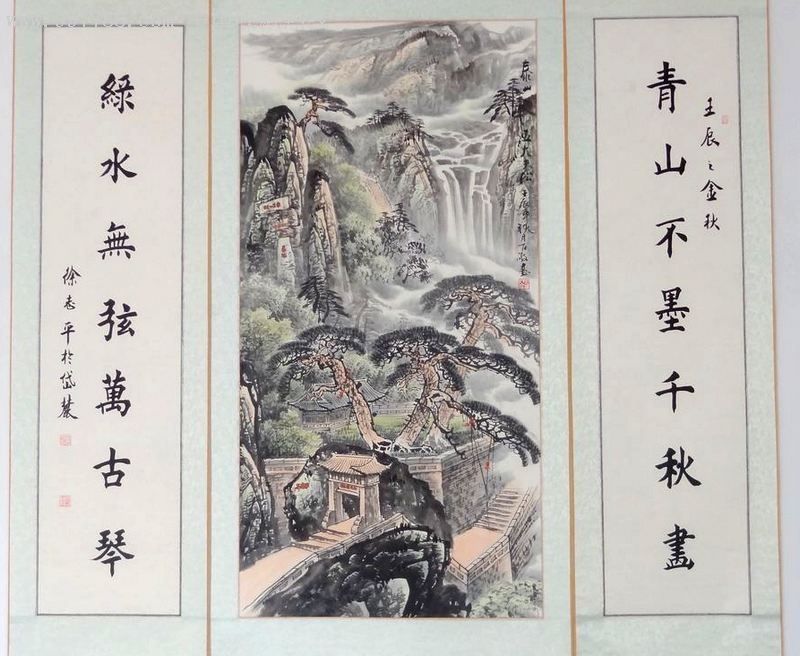 壬辰之金秋
青山不墨千秋畫
泰山五大夫松
綠水無弦萬古琴
徐志平於岱麓